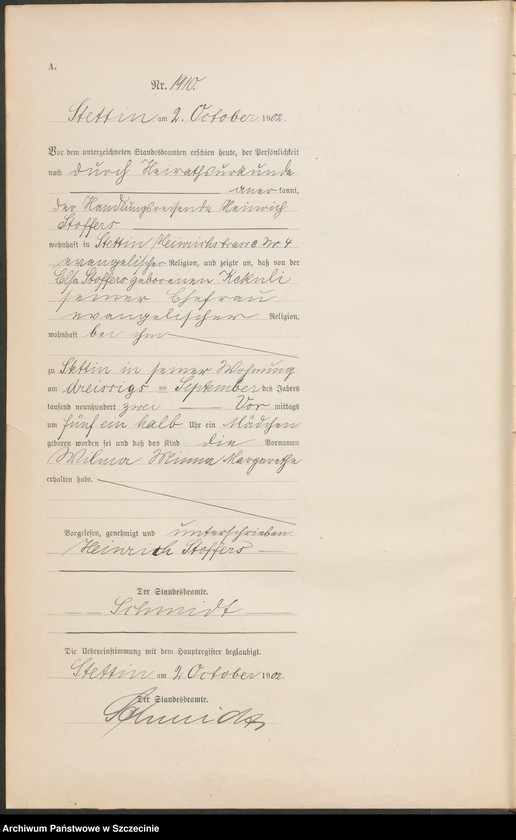 A.
Nr. 1910.
Stettin am 2. October 1902.
Vor dem unterzeichneten Standesbeamten erschien heute, der Persönlichkeit
nach durch Heirathsurkunde
aner kannt,
der Handlungsreisende Heinrich
Stoffers
wohnhaft in Stettin Heinrichstrasse Nr. 4
evangelischer Religion, und zeigte an, daß von der
Elsa Stoffers geborenen Kekuli
seiner Ehefrau
evangelischer Religion,
wohnhaft bei ihm
zu Stettin in seiner Wohnung
am dreissigsten September des Jahres
tausend neunhundert zwei Vor mittags
um fünf ein halb Uhr ein Mädchen
geboren worden sei und daß das Kind die Vornamen
Wilma Minna Margarethe
erhalten habe.
Vorgelesen, genehmigt und unterschrieben
Heinrich Stoffers
Der Standesbeamte.
Schmidt
Die Uebereinstimmung mit dem Hauptregister beglaubigt.
Stettin am 2. October 1902.
Der Standesbeamte.
Schmidt
Archiwum Państwowe w Szczecinie